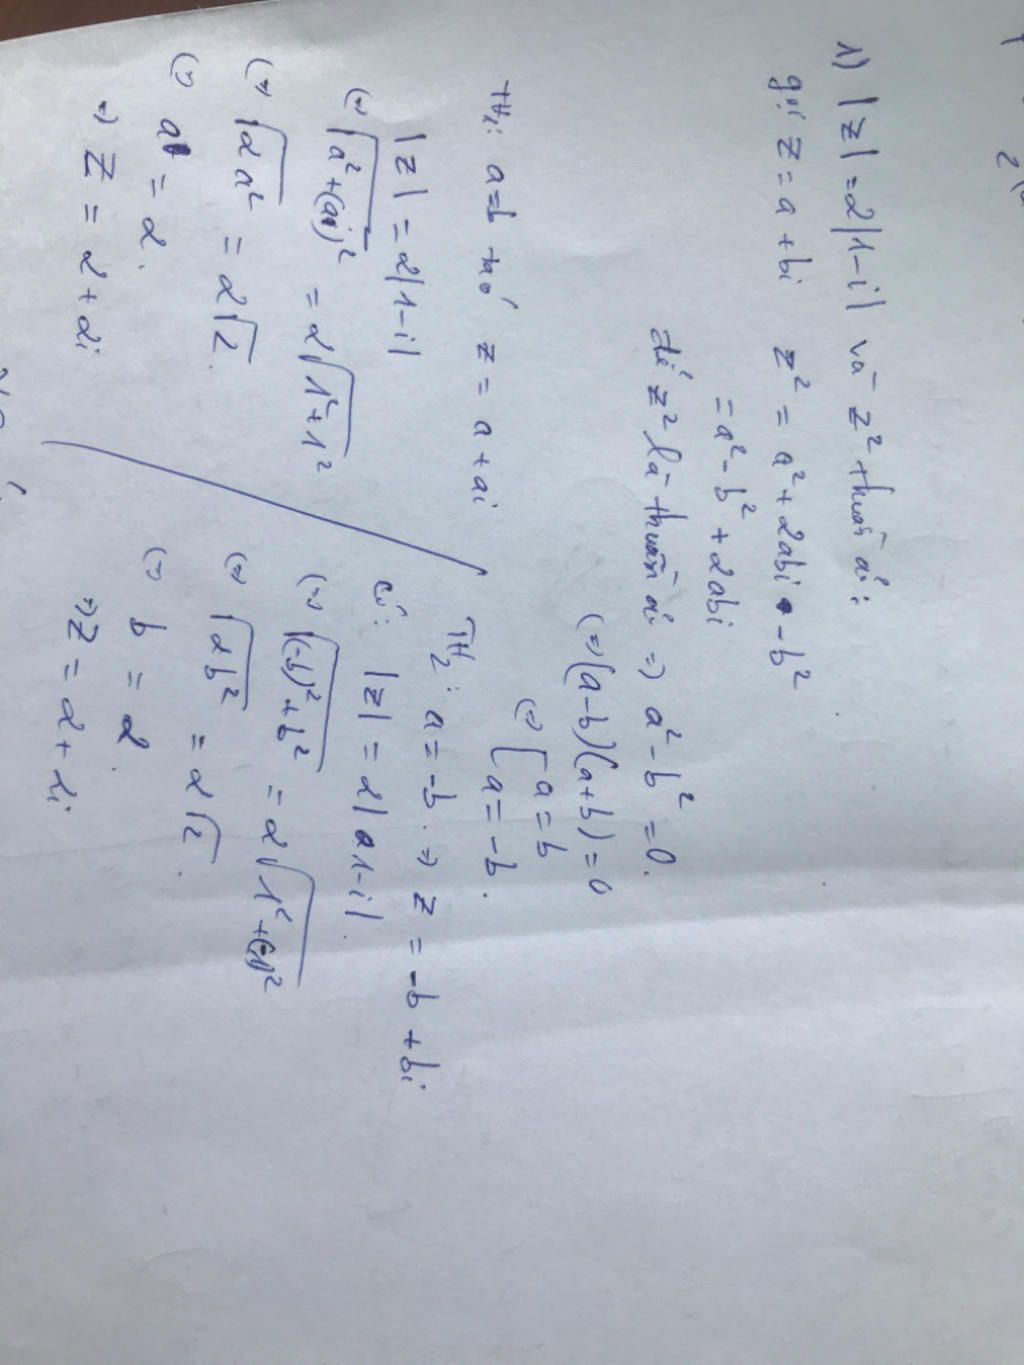 1) |z| = 2|1-i| và z² thuần ảo:
gọi z = a + bi z² = a² + 2abi - b²
= a² - b² + 2abi
để z² là thuần ảo => a² - b² = 0.
(=> (a-b)(a+b) = 0
(=> [ a = b
a = -b.
TH₁: a=b z = a + ai
|z| = 2|1-i|
(=> √(a²+(ai)²) = 2√(1²+1²)
(=> √(2a²) = 2√2.
(=> a = 2.
=> z = 2 + 2i
TH₂: a = -b. => z = -b + bi
có: |z| = 2|1-i|.
(=> √((-b)²+b²) = 2√(1²+(-1)²)
(=> √(2b²) = 2√2.
(=> b = 2.
=> z = 2 + 2i